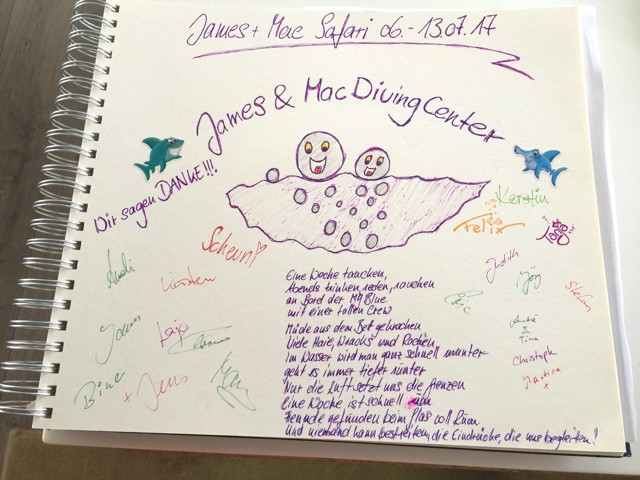 James + Mac Safari 06.-13.07.17
James & Mac Diving Center
Wir sagen DANKE!!!
Kerstin
Felix
Tanja
Judith
Jörg
Stefan
Andi
Kirsten
Bine
+ Jens
Christoph
Martina
Eine Woche tauchen,
Abends trinken, reden, rauchen
an Bord der MY Blue
mit einer tollen Crew
Müde aus dem Bet gekrochen
Viele Haie, Wracks und Rochen
im Wasser wird man ganz schnell munter
geht es immer tiefer runter
Nur die Luft setzt uns die Grenzen
Eine Woche ist schnell rum
Freunde gefunden beim Glas voll Rum
und niemand kann bestreiten, die Eindrücke, die uns begleiten!